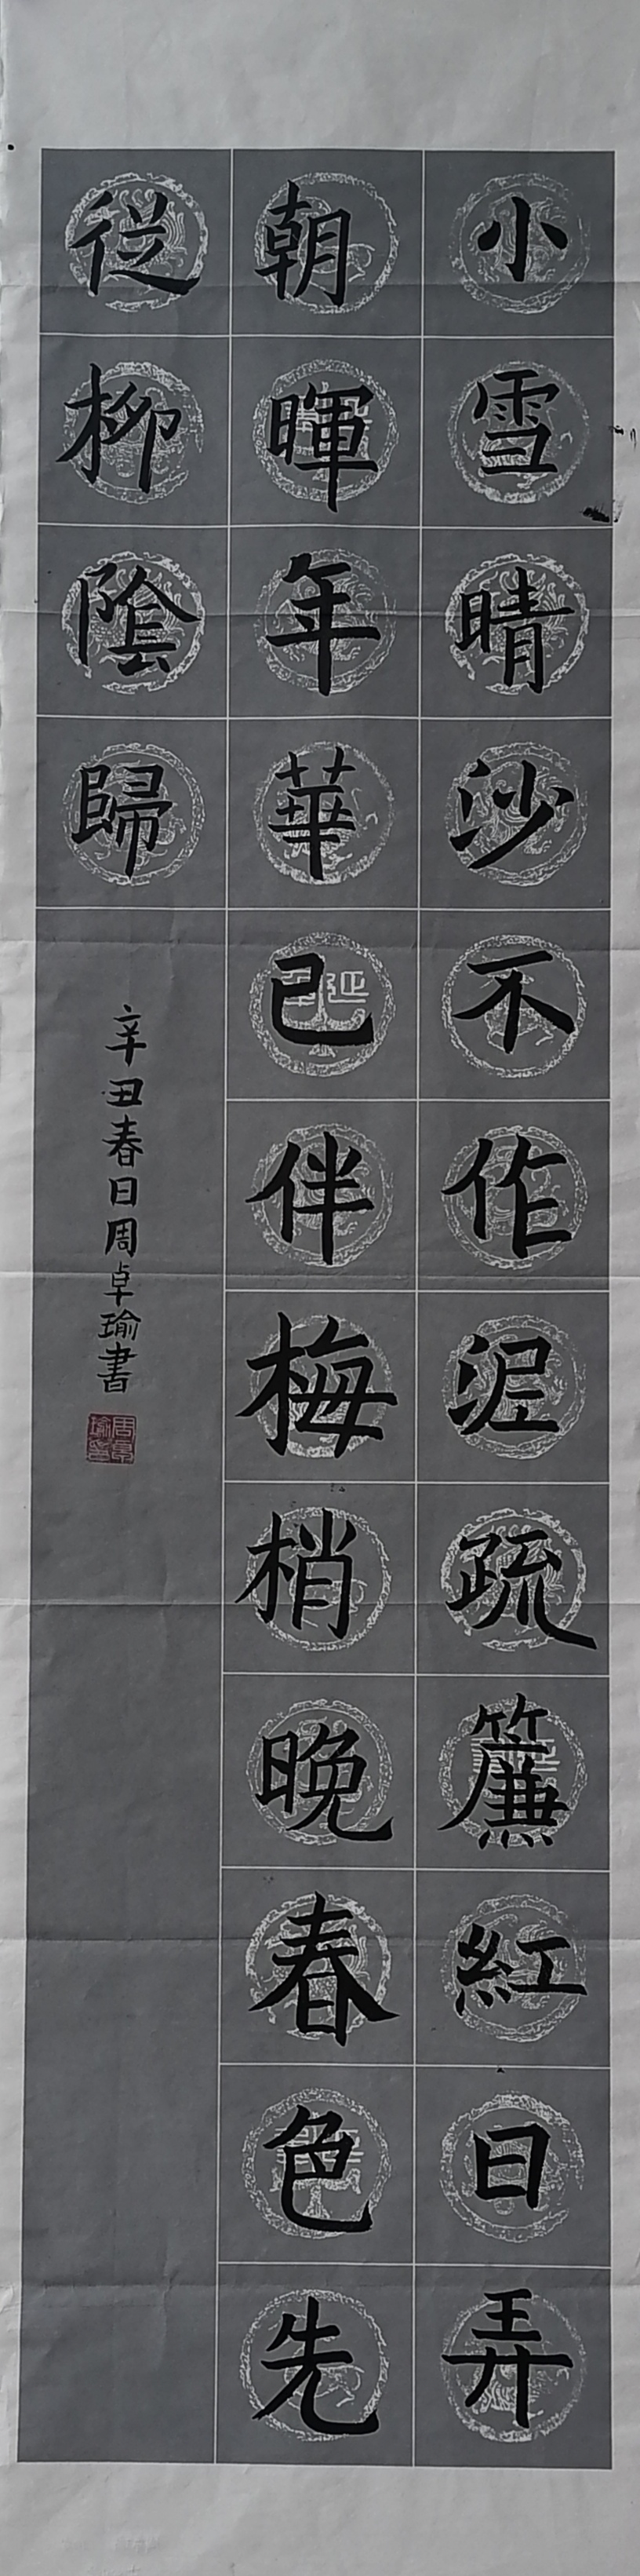 小雪晴沙不作泥疏簾紅日弄
朝暉年華已伴梅梢晚春色先
従柳陰歸
辛丑春日周卓瑜書